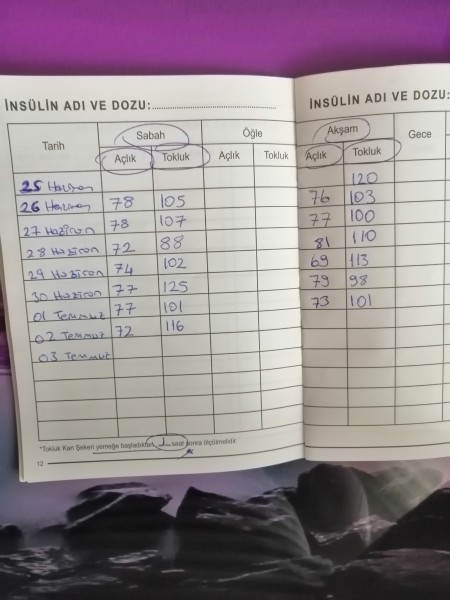 İNSÜLİN ADI VE DOZU:
Tarih Sabah Öğle
Açlık Tokluk Açlık Tokluk
25 Haziran
26 Haziran 78 105
27 Haziran 78 107
28 Haziran 72 88
29 Haziran 74 102
30 Haziran 77 125
01 Temmuz 77 101
02 Temmuz 72 116
03 Temmuz
*Tokluk Kan Şekeri yemeğe başladıktan 1 saat sonra ölçülmelidir.
12
İNSÜLİN ADI VE DOZU:
Akşam Gece
Açlık Tokluk
120
76 103
77 100
81 110
69 113
79 98
73 101